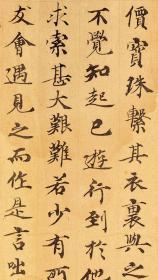 價寶珠繫其衣裏與之
不覺知起已遊行到於他
求索甚大艱難若少有所
友會遇見之而作是言咄